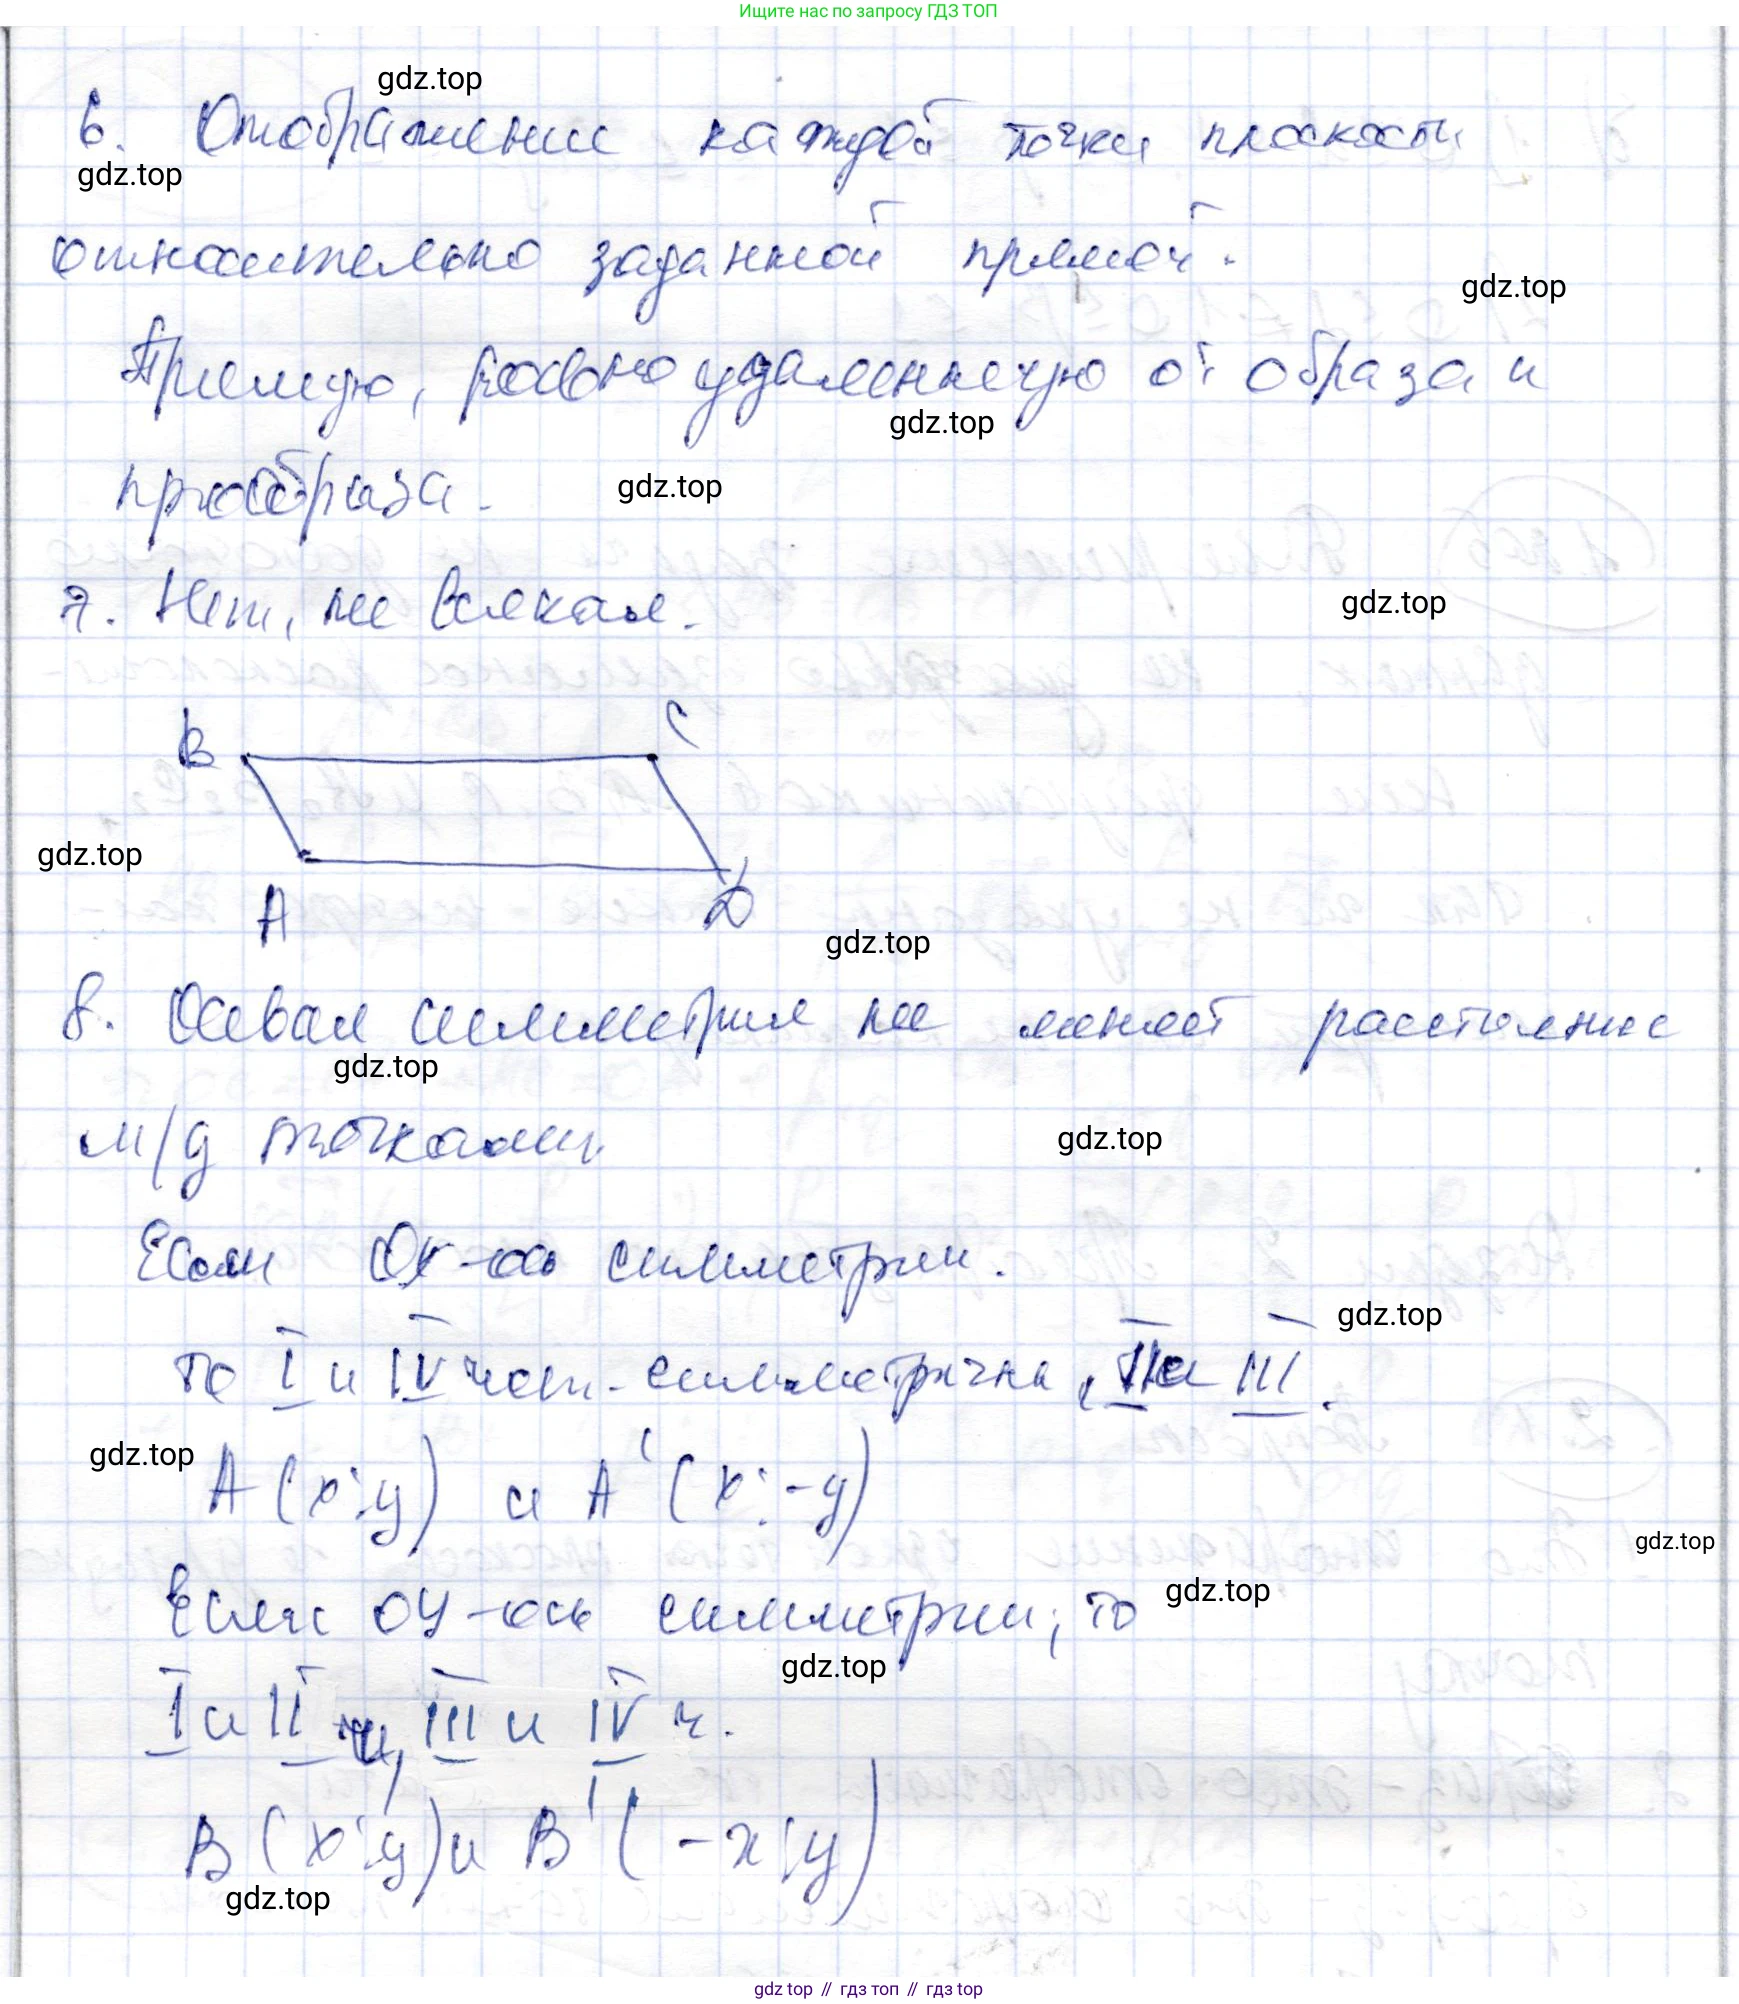 Ищите нас по запросу ГДЗ ТОП
gdz.top
6. Отображение каждой точки плоскости
gdz.top
относительно заданной прямой.
gdz.top
Прямую, равноудаленную от образа и
gdz.top
прообраза.
gdz.top
7. Нет, не всякая.
gdz.top
B C
gdz.top
A D
gdz.top
8. Осевая симметрия не меняет расстояние
gdz.top
м/д точками.
gdz.top
Если Ox-ось симметрии.
gdz.top
то I и IV чет. симметричны, II и III.
gdz.top
A(x;y) и A'(x;-y)
gdz.top
Если OY-ось симметрии, то
gdz.top
gdz.top
I и II ч, III и IV ч.
B(x;y) и B'(-x;y)
gdz.top
gdz.top // гдз топ // гдз top